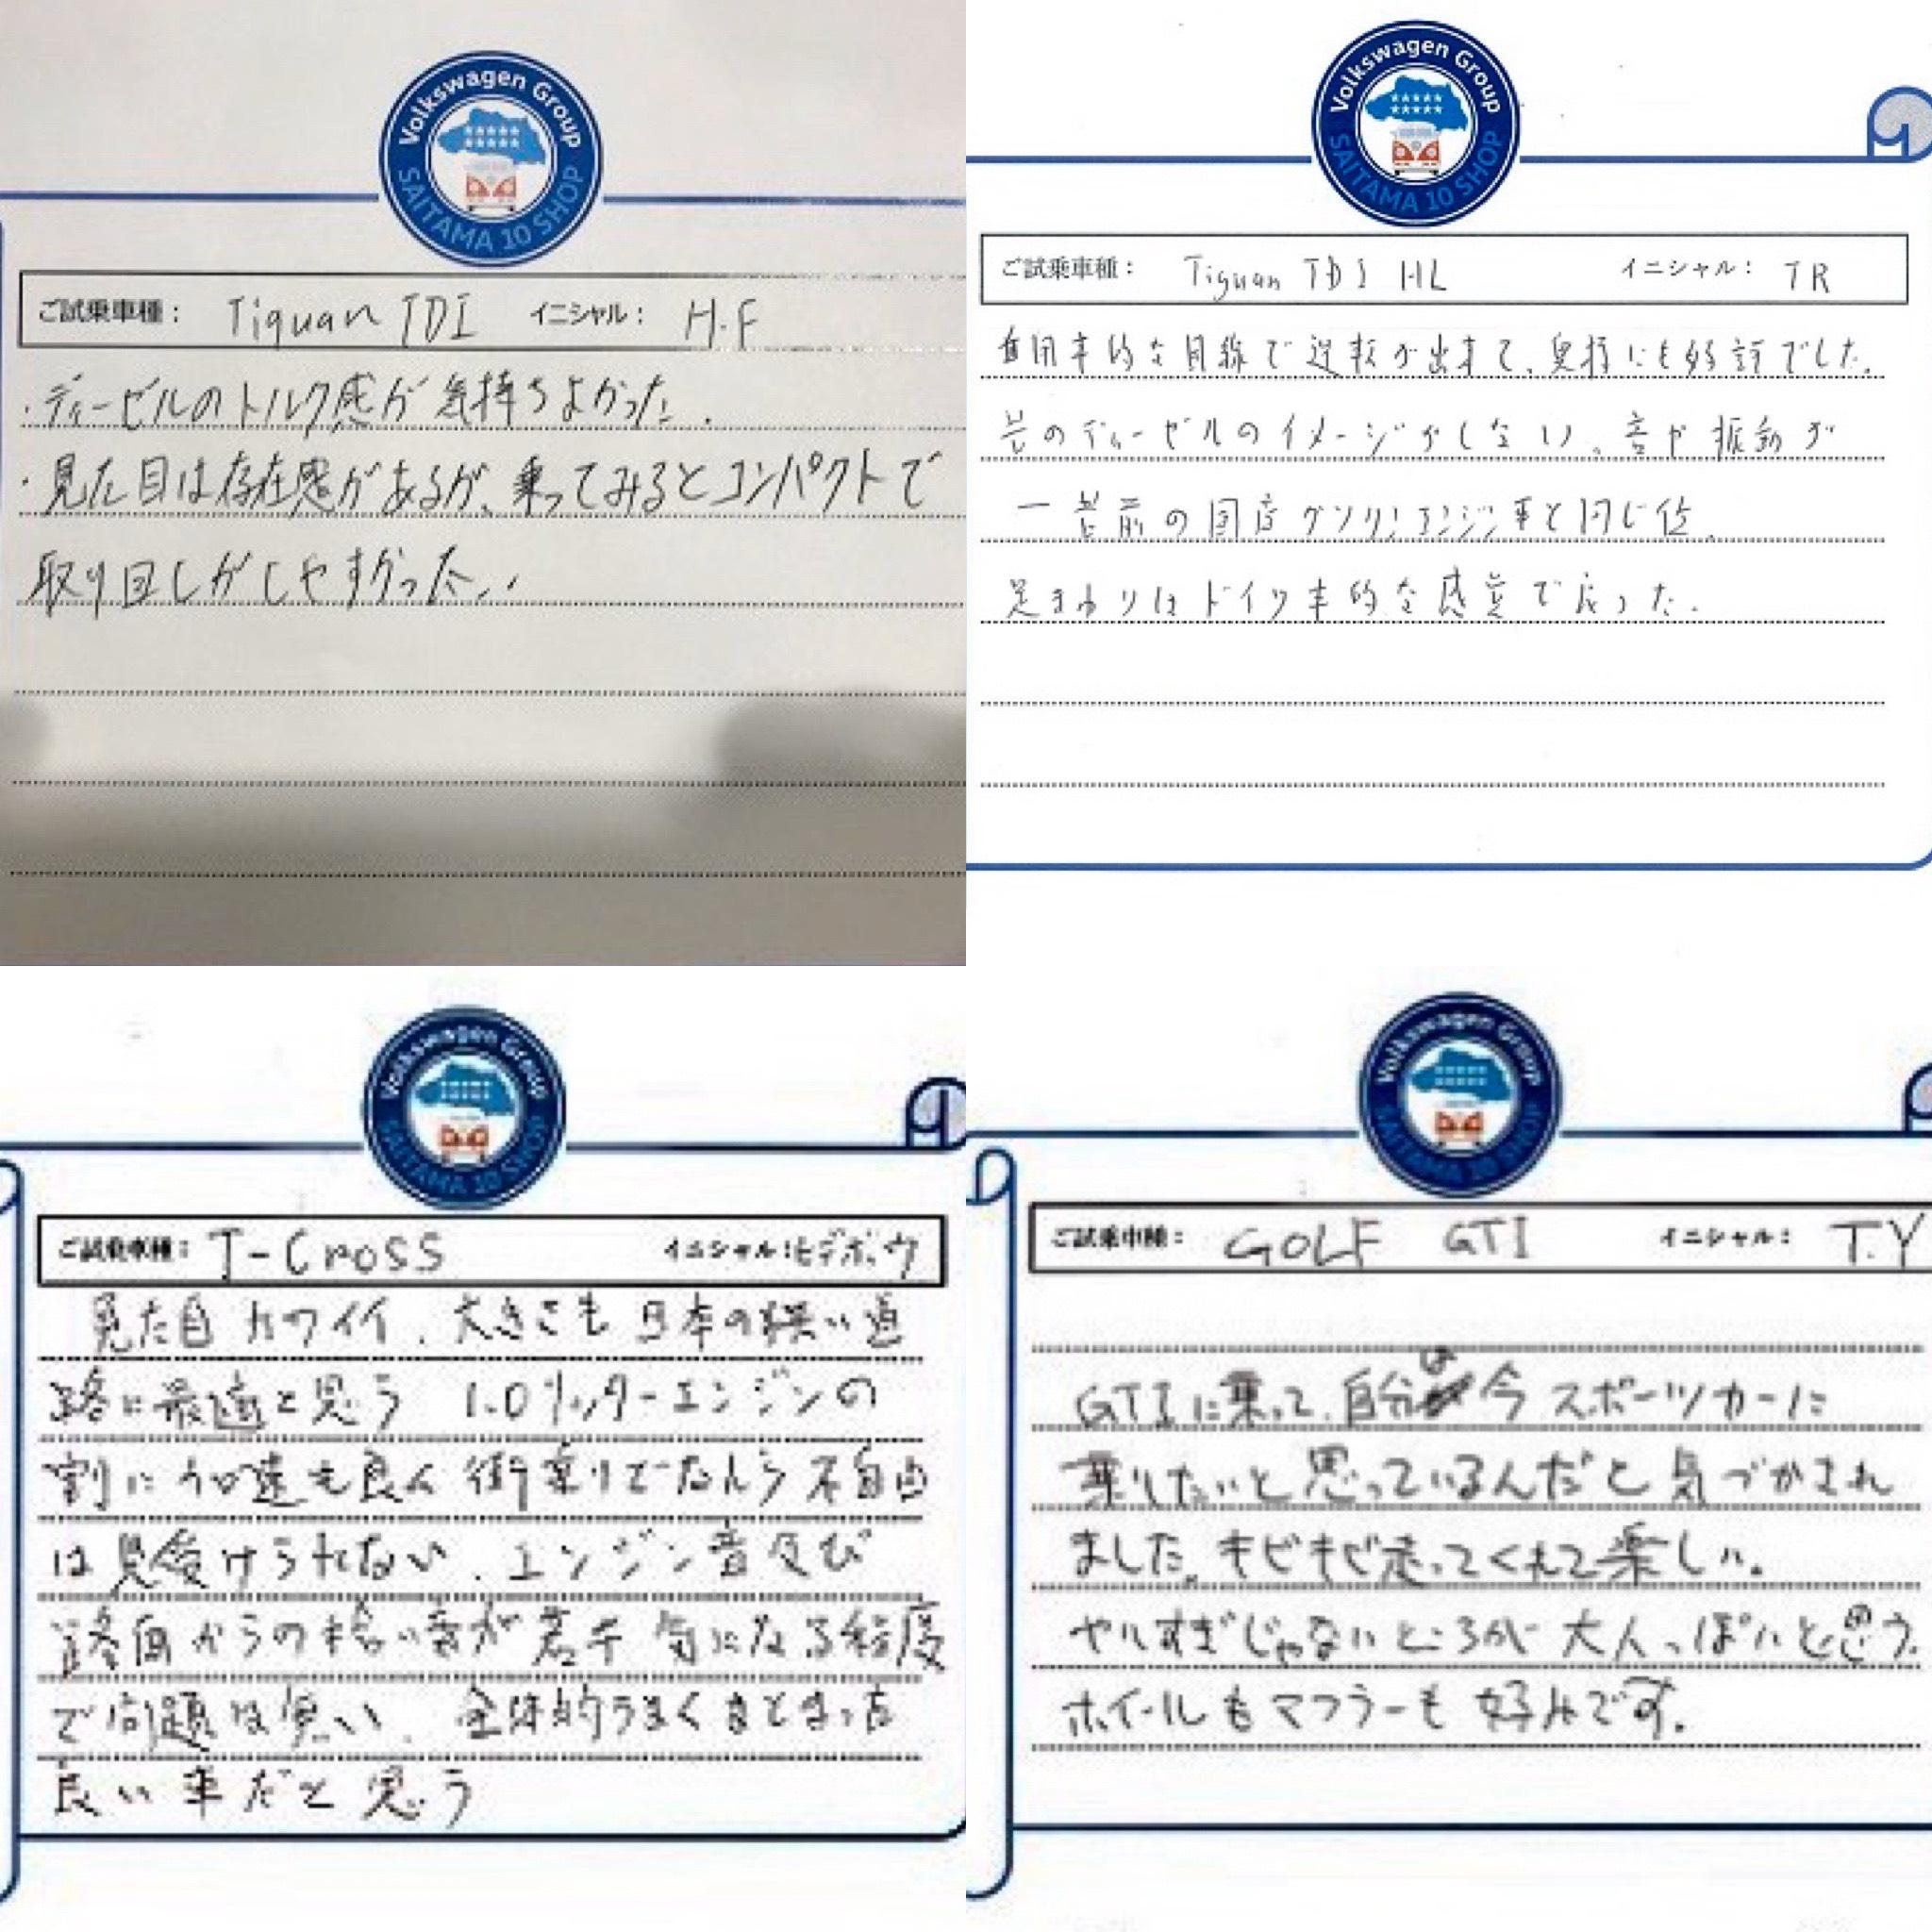 Volkswagen Group
SAITAMA 10 SHOP
ご試乗車種： Tiguan TDI イニシャル： H.F
・ディーゼルのトルク感が気持ちよかった。
・見た目は存在感があるが、乗ってみるとコンパクトで
取り回しがしやすかった。
Volkswagen Group
SAITAMA 10 SHOP
ご試乗車種： Tiguan TDI HL イニシャル： TR
自用車的な目線で運転が出来て、奥様にも好評でした。
昔のディーゼルのイメージがしない。音や振動が
一昔前の国産ガソリンエンジン車と同じ位。
足まわりはドイツ車的な感覚で良った。
Volkswagen Group
SAITAMA 10 SHOP
ご試乗車種： T-Cross イニシャル：ヒデボウ
見た目カワイイ、大きさも日本の狭い道
路に最適と思う 1.0リッターエンジンの
割に加速も良く街乗りでなんら不自由
は見受けられない、エンジン音及び
路面からの拾い音が若干気になる程度
で問題は無い、全体的うまくまとまった
良い車だと思う
Volkswagen Group
SAITAMA 10 SHOP
ご試乗車種： GOLF GTI イニシャル： T.Y
GTIに乗って、自分は今スポーツカーに
乗りたいと思っているんだと気づかされ
ました。キビキビ走ってくれて楽しい。
やりすぎじゃないところが大人っぽいと思う。
ホイールもマフラーも好みです。